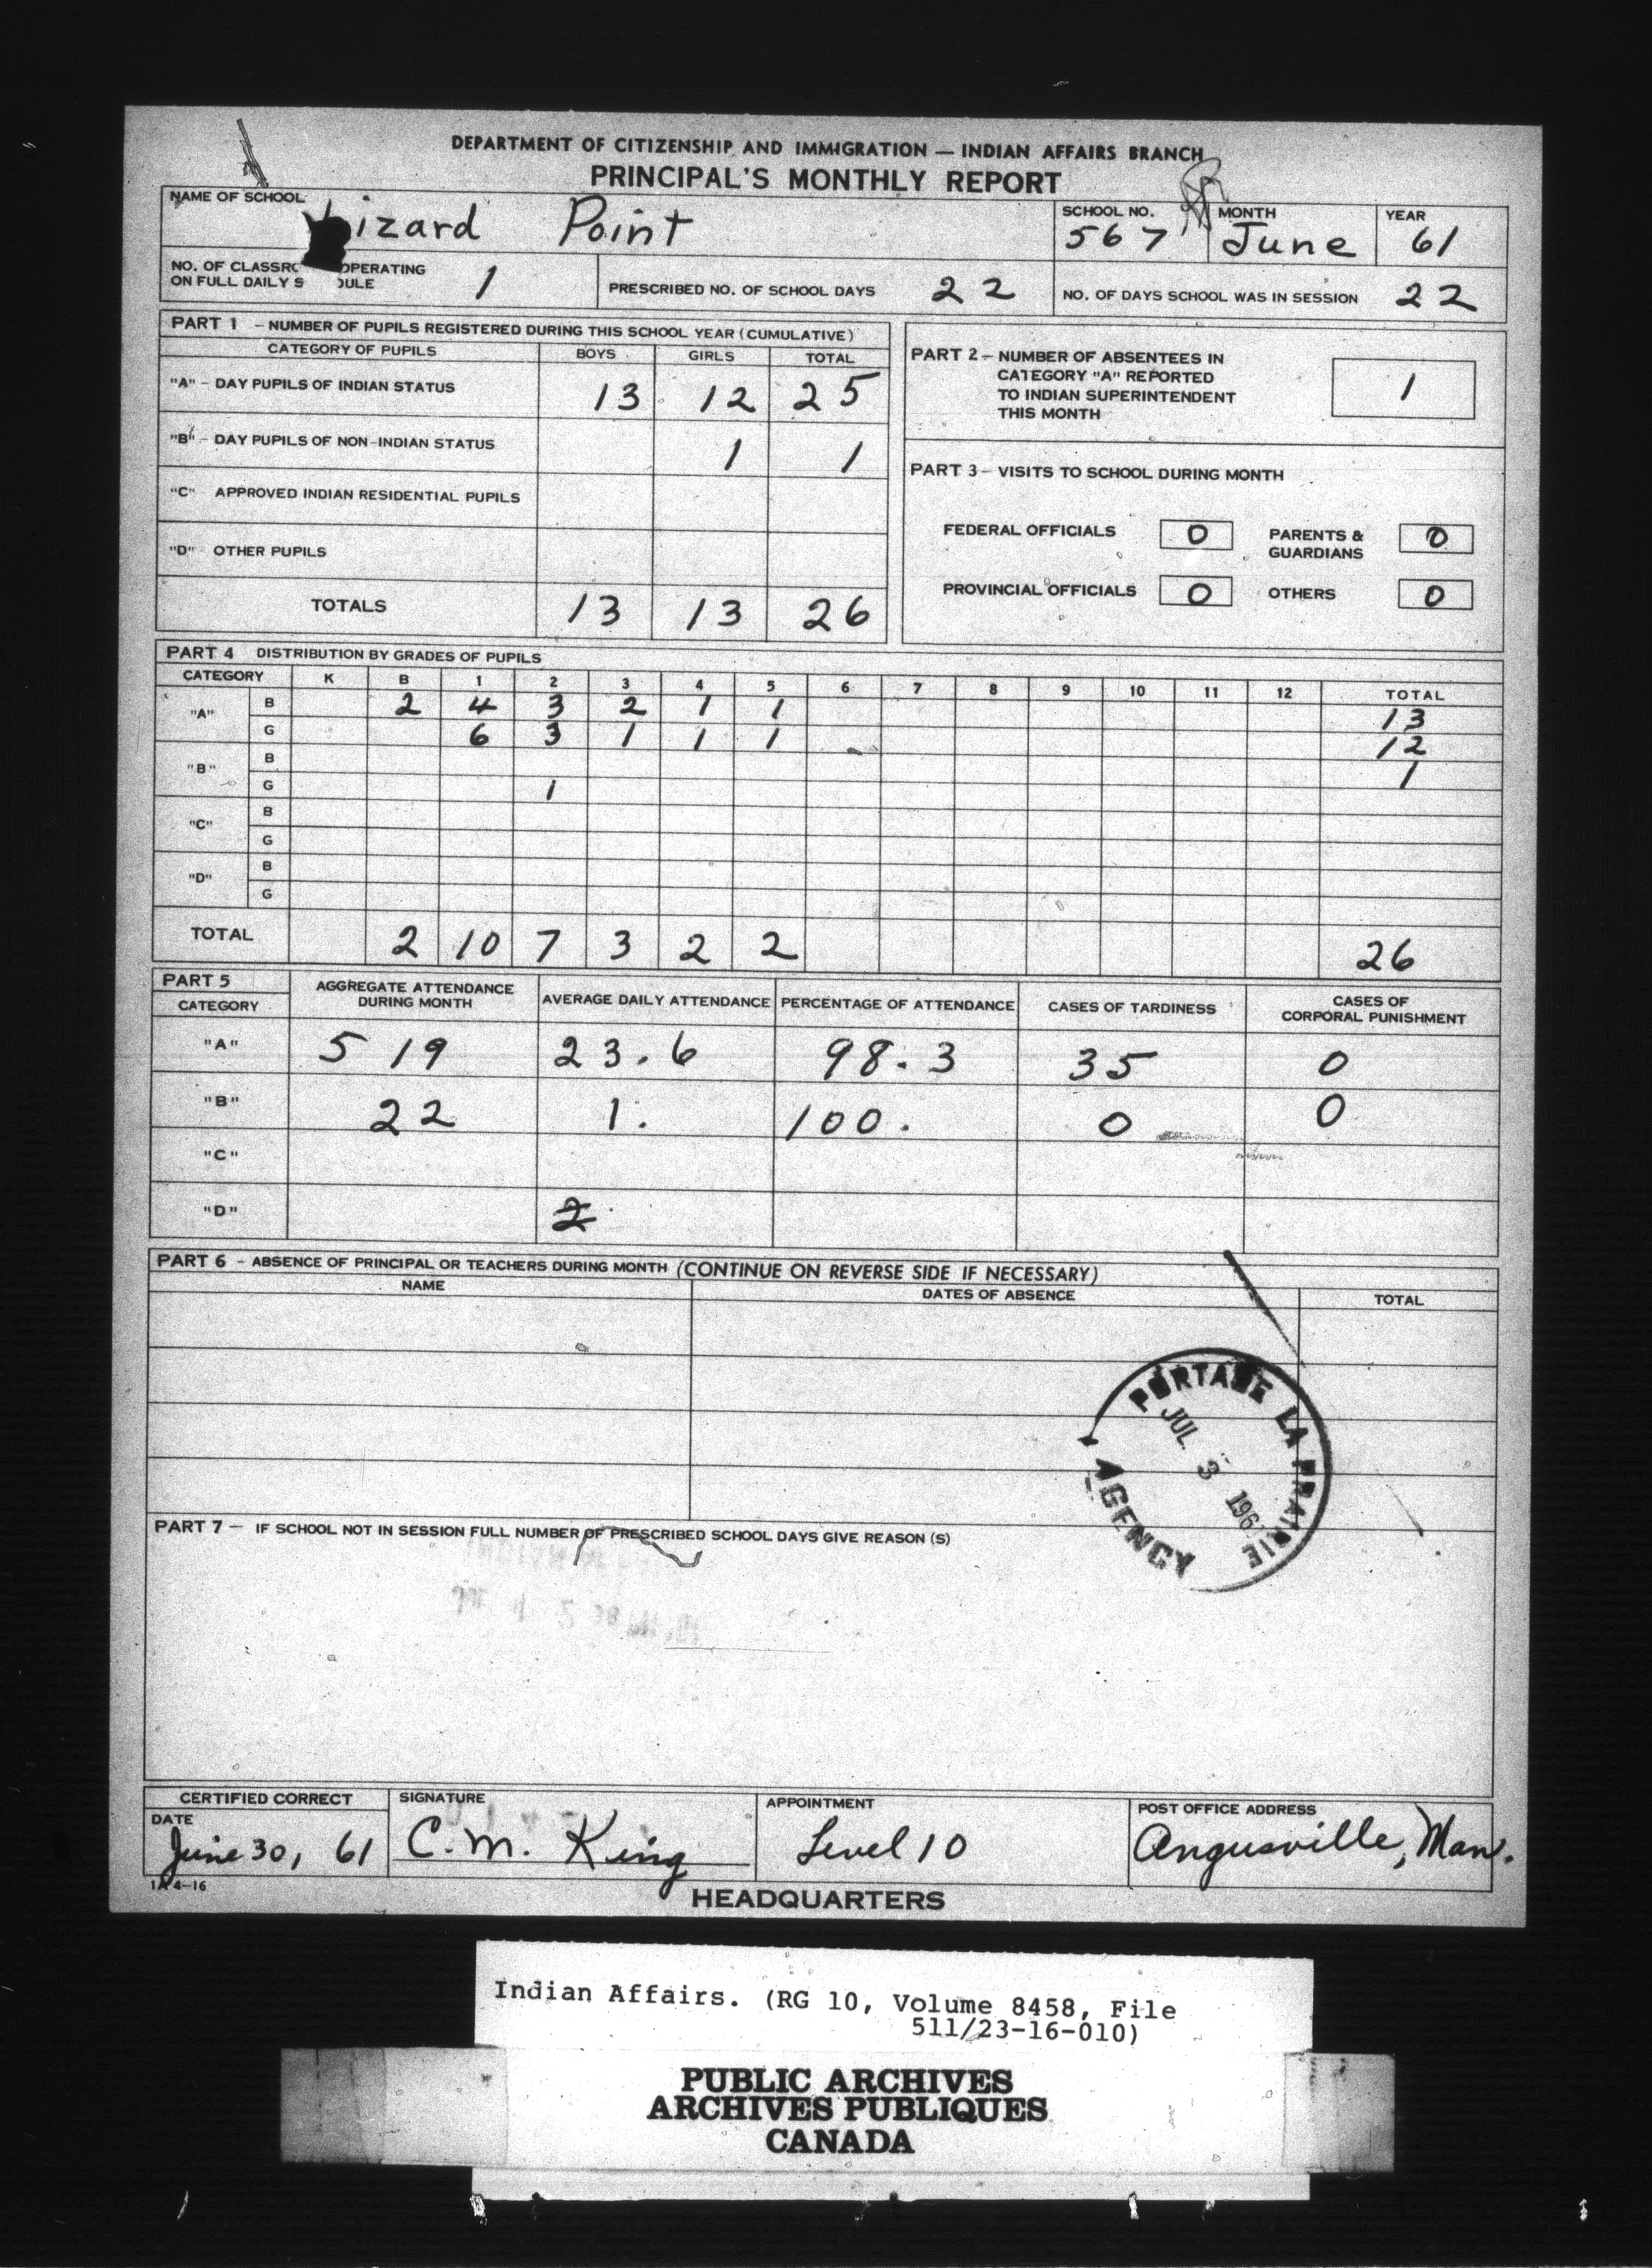 DEPARTMENT OF CITIZENSHIP AND IMMIGRATION — INDIAN AFFAIRS BRANCH
PRINCIPAL'S MONTHLY REPORT
NAME OF SCHOOL Lizard Point SCHOOL NO. 567 MONTH June YEAR 61
NO. OF CLASSRO OPERATING ON FULL DAILY S DULE 1 PRESCRIBED NO. OF SCHOOL DAYS 22 NO. OF DAYS SCHOOL WAS IN SESSION 22
PART 1 – NUMBER OF PUPILS REGISTERED DURING THIS SCHOOL YEAR (CUMULATIVE)
CATEGORY OF PUPILS BOYS GIRLS TOTAL
"A" – DAY PUPILS OF INDIAN STATUS 13 12 25
"B" – DAY PUPILS OF NON-INDIAN STATUS 1 1
"C" APPROVED INDIAN RESIDENTIAL PUPILS
"D" OTHER PUPILS
TOTALS 13 13 26
PART 2 – NUMBER OF ABSENTEES IN
CATEGORY "A" REPORTED
TO INDIAN SUPERINTENDENT
THIS MONTH 1
PART 3 – VISITS TO SCHOOL DURING MONTH
FEDERAL OFFICIALS 0 PARENTS & GUARDIANS 0
PROVINCIAL OFFICIALS 0 OTHERS 0
PART 4 DISTRIBUTION BY GRADES OF PUPILS
CATEGORY K B 1 2 3 4 5 6 7 8 9 10 11 12 TOTAL
"A" B 2 4 3 2 1 1 13
G 6 3 1 1 1 12
"B" B
G 1 1
"C" B
G
"D" B
G
TOTAL 2 10 7 3 2 2 26
PART 5
CATEGORY AGGREGATE ATTENDANCE DURING MONTH AVERAGE DAILY ATTENDANCE PERCENTAGE OF ATTENDANCE CASES OF TARDINESS CASES OF CORPORAL PUNISHMENT
"A" 519 23.6 98.3 35 0
"B" 22 1. 100. 0 0
"C"
"D" 2
PART 6 – ABSENCE OF PRINCIPAL OR TEACHERS DURING MONTH (CONTINUE ON REVERSE SIDE IF NECESSARY)
NAME DATES OF ABSENCE TOTAL
PORTAGE LA PRAIRIE
JUL 3 1961
AGENCY
PART 7 – IF SCHOOL NOT IN SESSION FULL NUMBER OF PRESCRIBED SCHOOL DAYS GIVE REASON (S)
CERTIFIED CORRECT SIGNATURE APPOINTMENT POST OFFICE ADDRESS
DATE
June 30, 61 C.M. King Level 10 Angusville, Man.
1A 4-16
HEADQUARTERS
Indian Affairs. (RG 10, Volume 8458, File
511/23-16-010)
PUBLIC ARCHIVES
ARCHIVES PUBLIQUES
CANADA